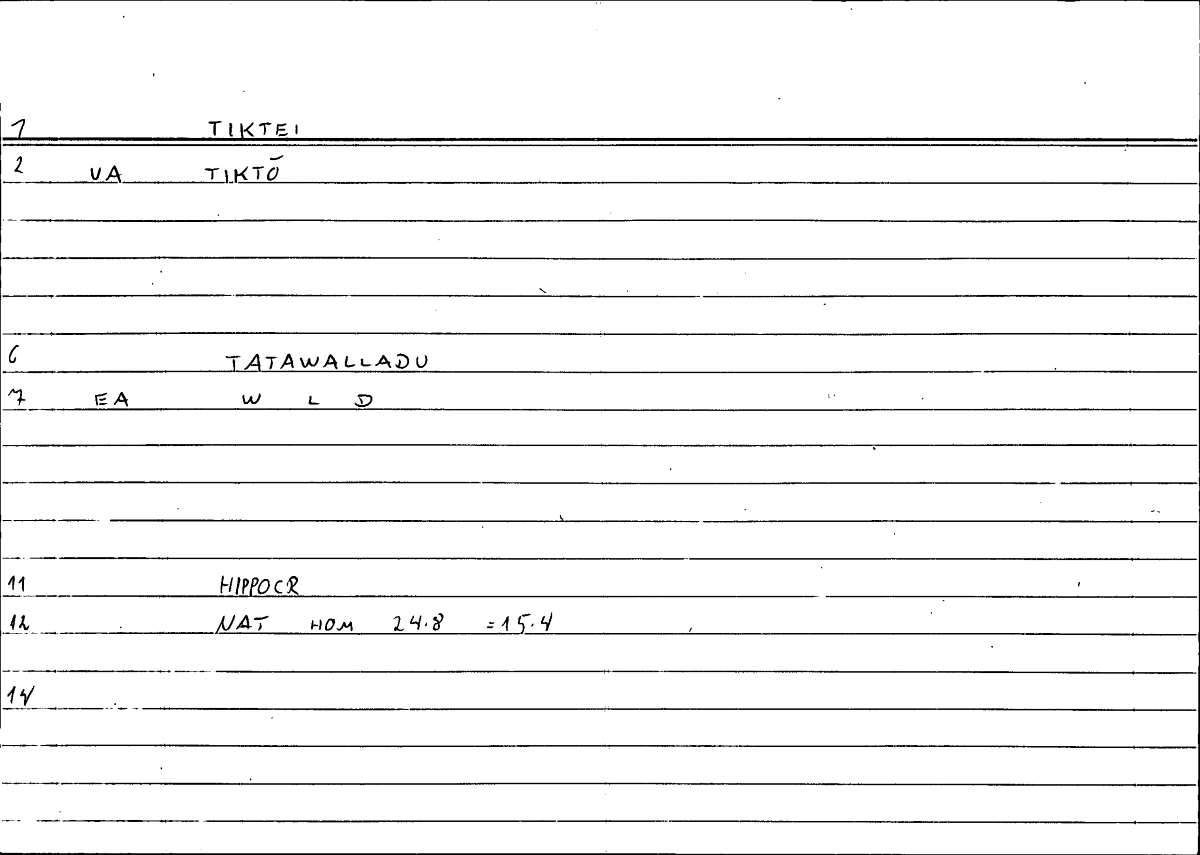 1 TIKTEI
2 VA TIKTŌ
6 TATAWALLADU
7 EA W L D
11 HIPPOCR
12 NAT HOM 24.8 =15.4
14